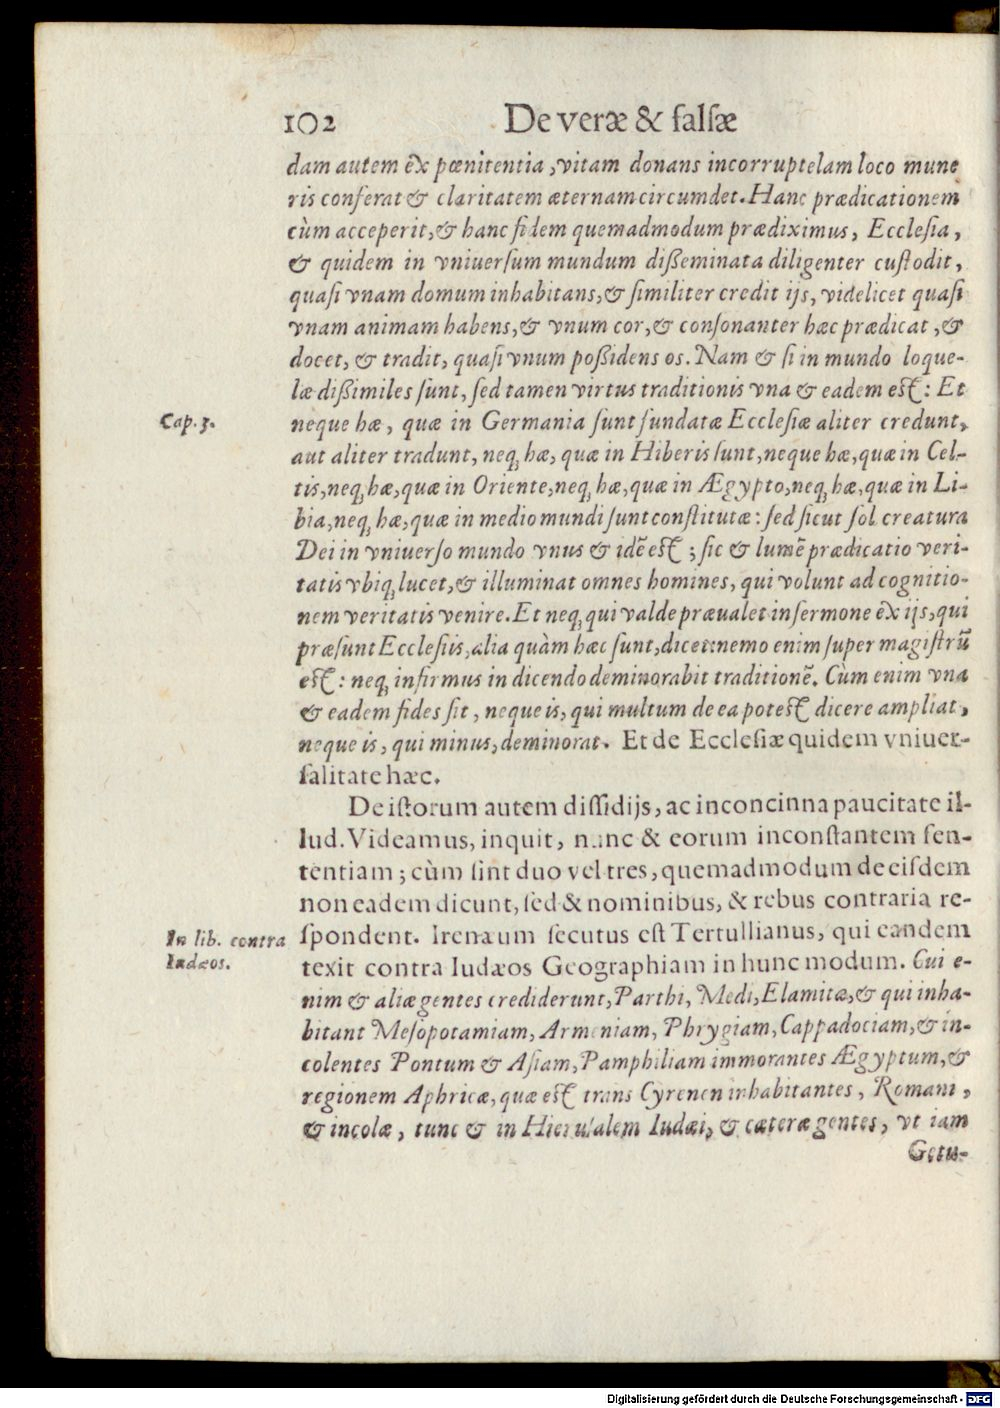 102 De veræ & falsæ
dam autem ex pœnitentia, vitam donans incorruptelam loco mune
ris conferat & claritatem æternam circumdet. Hanc prædicationem
cùm acceperit, & hanc fidem quemadmodum prædiximus, Ecclesia,
& quidem in vniuersum mundum dißeminata diligenter custodit,
quasi vnam domum inhabitans, & similiter credit ijs, videlicet quasi
vnam animam habens, & vnum cor, & consonanter hæc prædicat, &
docet, & tradit, quasi vnum poßidens os. Nam & si in mundo loque-
læ dißimiles sunt, sed tamen virtus traditionis vna & eadem est: Et
Cap. 3.
neque hæ, quæ in Germania sunt fundatæ Ecclesiæ aliter credunt,
aut aliter tradunt, neq; hæ, quæ in Hiberis sunt, neque hæ, quæ in Cel-
tis, neq; hæ, quæ in Oriente, neq; hæ, quæ in Ægypto, neq; hæ, quæ in Li-
bia, neq; hæ, quæ in medio mundi sunt constitutæ: sed sicut sol creatura
Dei in vniuerso mundo vnus & idē est; sic & lumē prædicatio veri-
tatis vbiq; lucet, & illuminat omnes homines, qui volunt ad cognitio-
nem veritatis venire. Et neq; qui valde præualet in sermone ex ijs, qui
præsunt Ecclesiis, alia quàm hæc sunt, dicet: nemo enim super magistrū
est: neq; infirmus in dicendo deminorabit traditionē. Cùm enim vna
& eadem fides sit, neque is, qui multum de ea potest dicere ampliat,
neque is, qui minus, deminorat. Et de Ecclesiæ quidem vniuer-
salitate hæc.
De istorum autem dissidijs, ac inconcinna paucitate il-
lud. Videamus, inquit, nunc & eorum inconstantem sen-
tentiam; cùm sint duo vel tres, quemadmodum de eisdem
non eadem dicunt, sed & nominibus, & rebus contraria re-
In lib. contra
Iudæos.
spondent. Irenæum secutus est Tertullianus, qui eandem
texit contra Iudæos Geographiam in hunc modum. Cui e-
nim & aliæ gentes crediderunt, Parthi, Medi, Elamitæ, & qui inha-
bitant Mesopotamiam, Armeniam, Phrygiam, Cappadociam, & in-
colentes Pontum & Asiam, Pamphiliam immorantes Ægyptum, &
regionem Aphricæ, quæ est trans Cyrenen inhabitantes, Romani,
& incolæ, tunc & in Hierusalem Iudæi, & cæteræ gentes, vt iam
Getu-
Digitalisierung gefördert durch die Deutsche Forschungsgemeinschaft - DFG